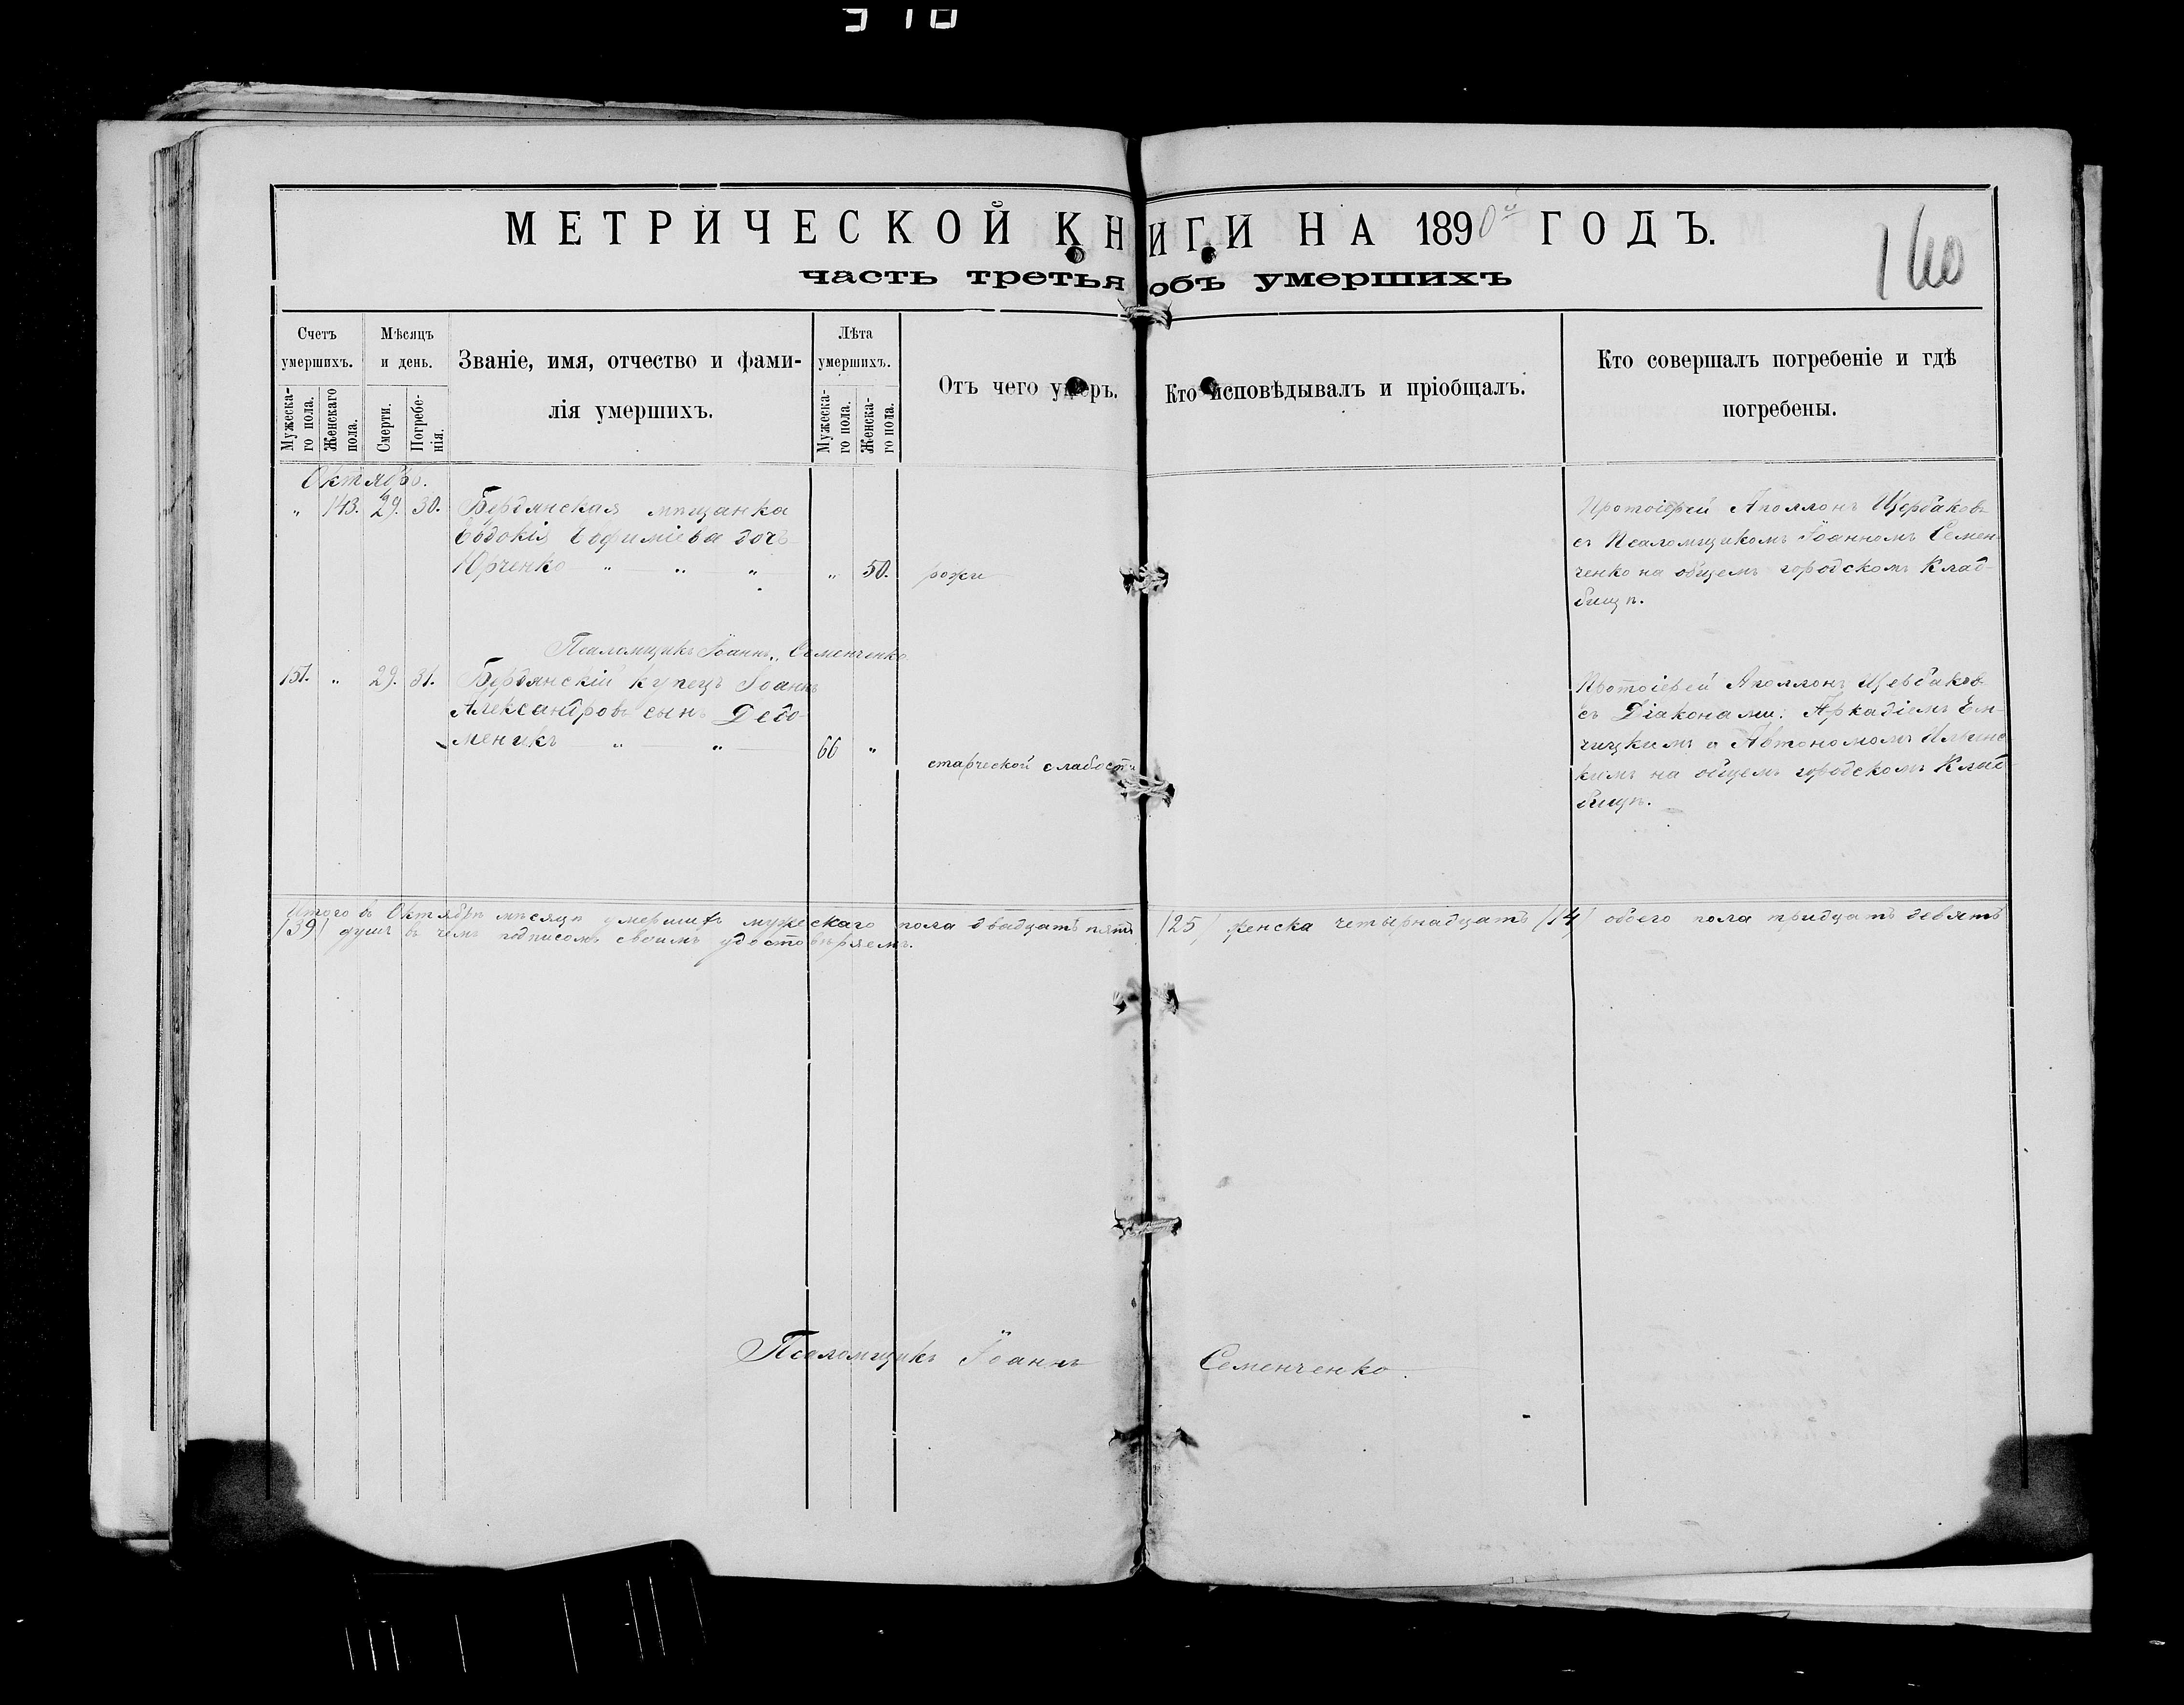 МЕТРИЧЕСКОЙ КНИГИ НА 1890й ГОДЪ.
160
часть третья объ умершихъ
Счетъ умершихъ.
Мѣсяцъ и день.
Званіе, имя, отчество и фами-
лія умершихъ.
Лѣта умершихъ.
Отъ чего умеръ.
Кто исповѣдывалъ и пріобщалъ.
Кто совершалъ погребеніе и гдѣ
погребены.
Мужеска-
го пола.
Женскаго
пола.
Смерти.
Погребе-
нія.
Мужеска-
го пола.
Женска-
го пола.
Октябрь.
" 143. 29. 30. Бердянская мѣщанка
Евдокія Евфиміева дочь
Юрченко " " " " 50. рожи
Протоіерей Аполлонъ Щербаковъ
съ Псаломщикомъ Іоанномъ Семен-
ченко на общемъ городскомъ Клад-
бищѣ.
Псаломщикъ Іоаннъ Семенченко
151. " 29. 31. Бердянскій купецъ Іоаннъ
Александровъ сынъ Дебо-
меникъ " " 66 " старческой слабости
Протоіерей Аполлонъ Щербаковъ
съ Діаконами: Аркадіемъ Ен-
чицкимъ и Автономомъ Ильинс
кимъ на общемъ городскомъ Клад-
бищѣ.
Итого въ Октябрѣ мѣсяцѣ умершихъ мужескаго пола двадцать пять /25/ женска четырнадцать /14/ обоего пола тридцать девять
/39/ душъ въ чемъ подписомъ своимъ удостовѣряемъ.
Псаломщикъ Іоаннъ Семенченко.